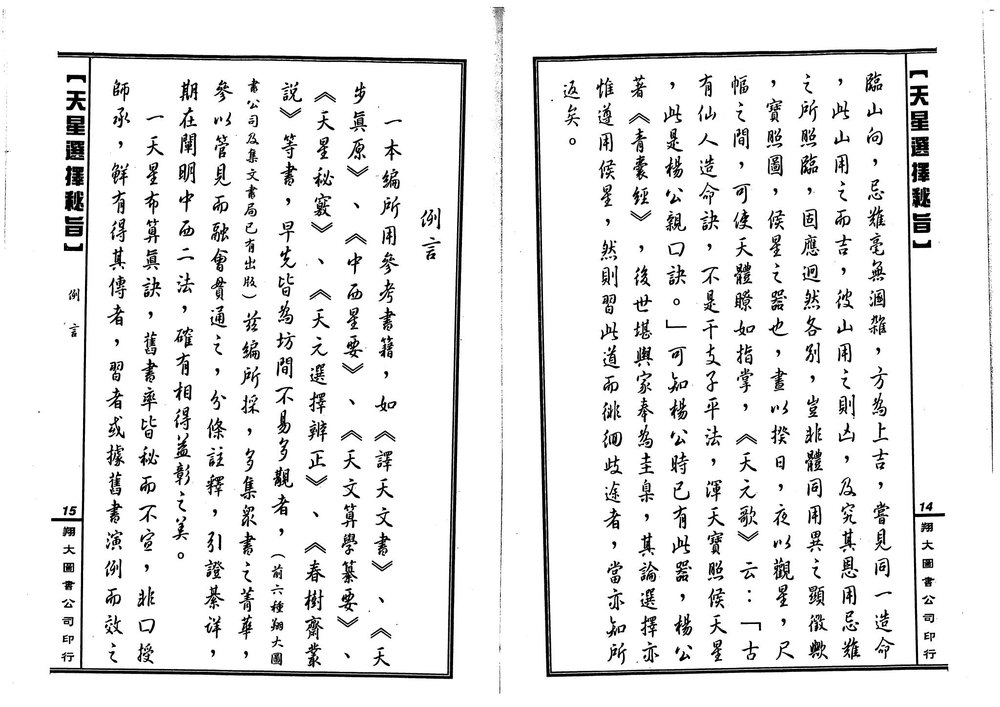 【天星選擇秘旨】
14
翔大圖書公司印行
臨山向，忌難毫無涸雜，方為上吉，嘗見同一造命
，此山用之而吉，彼山用之則凶，及究其恩用忌難
之所照臨，固應迥然各別，豈非體同用異之顯徵歟
，寶照圖，候星之器也，晝以揆日，夜以觀星，尺
幅之間，可使天體瞭如指掌，《天元歌》云：「古
有仙人造命訣，不是干支子平法，渾天寶照候天星
，此是楊公親口訣。」可知楊公時已有此器，楊公
著《青囊經》，後世堪輿家奉為圭臬，其論選擇亦
惟遵用候星，然則習此道而徘徊歧途者，當亦知所
返矣。
例言
一本編所用參考書籍，如《譯天文書》、《天
步真原》、《中西星要》、《天文算學纂要》、
《天星秘竅》、《天元選擇辨正》、《春樹齋叢
說》等書，早先皆為坊間不易多觀者，（前六種翔大圖
書公司及集文書局已有出版）茲編所採，多集衆書之菁華，
參以管見而融會貫通之，分條註釋，引證綦详，
期在闡明中西二法，確有相得益彰之美。
一天星布算真訣，舊書率皆秘而不宣，非口授
師承，鮮有得其傳者，習者或據舊書演例而效之
【天星選擇秘旨】
例言
15
翔大圖書公司印行